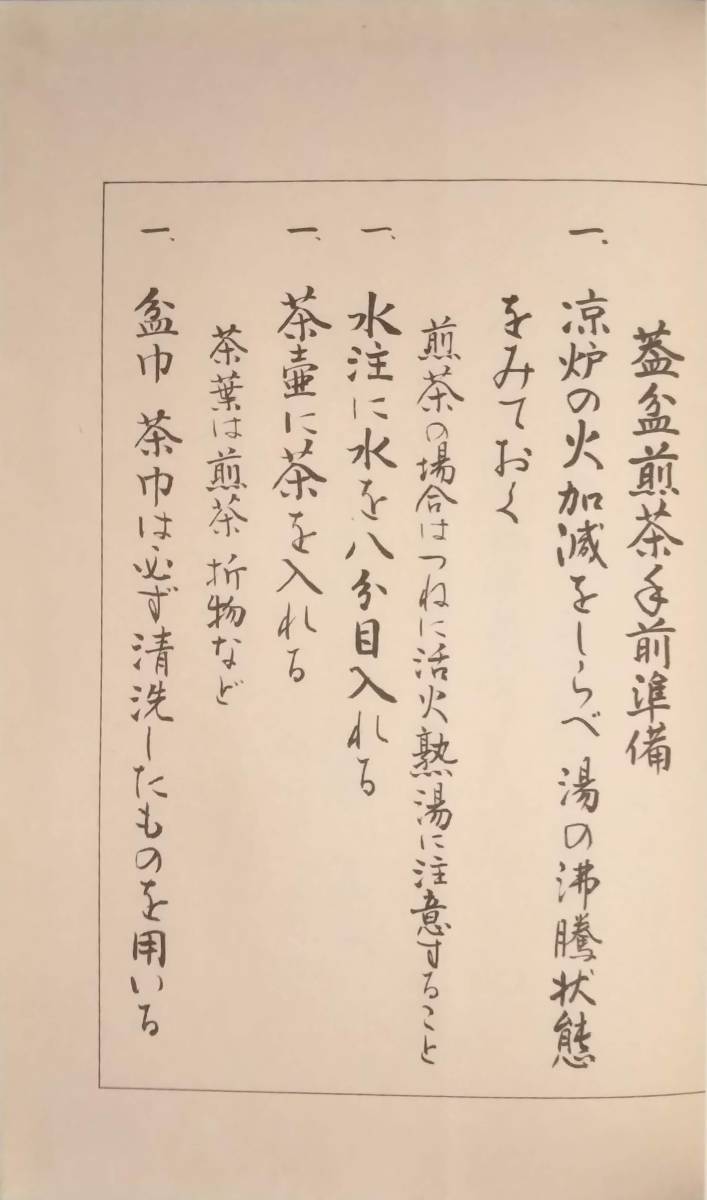 盆煎茶手前準備
一、涼炉の火加減をしらべ 湯の沸騰状態
をみておく
煎茶の場合はつねに活火熟湯に注意すること
一、水注に水を八分目入れる
一、茶壷に茶を入れる
茶葉は煎茶 折物など
一、盆巾 茶巾は必ず清洗したものを用いる